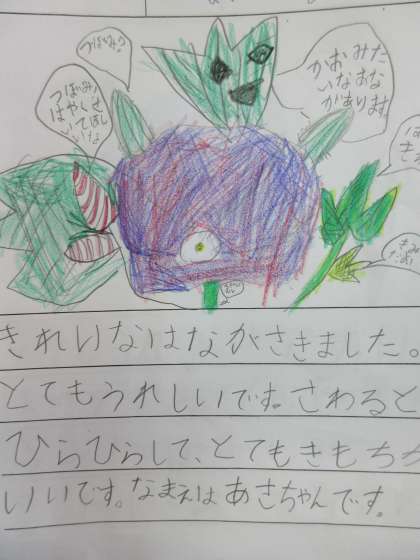 つぼみ？
かおみた
いなあな
があります。
つぼみ
はやく
きれいなはながさきました。
とてもうれしいです。さわると
ひらひらして、とてもきもちが
いいです。なまえはあさちゃんです。